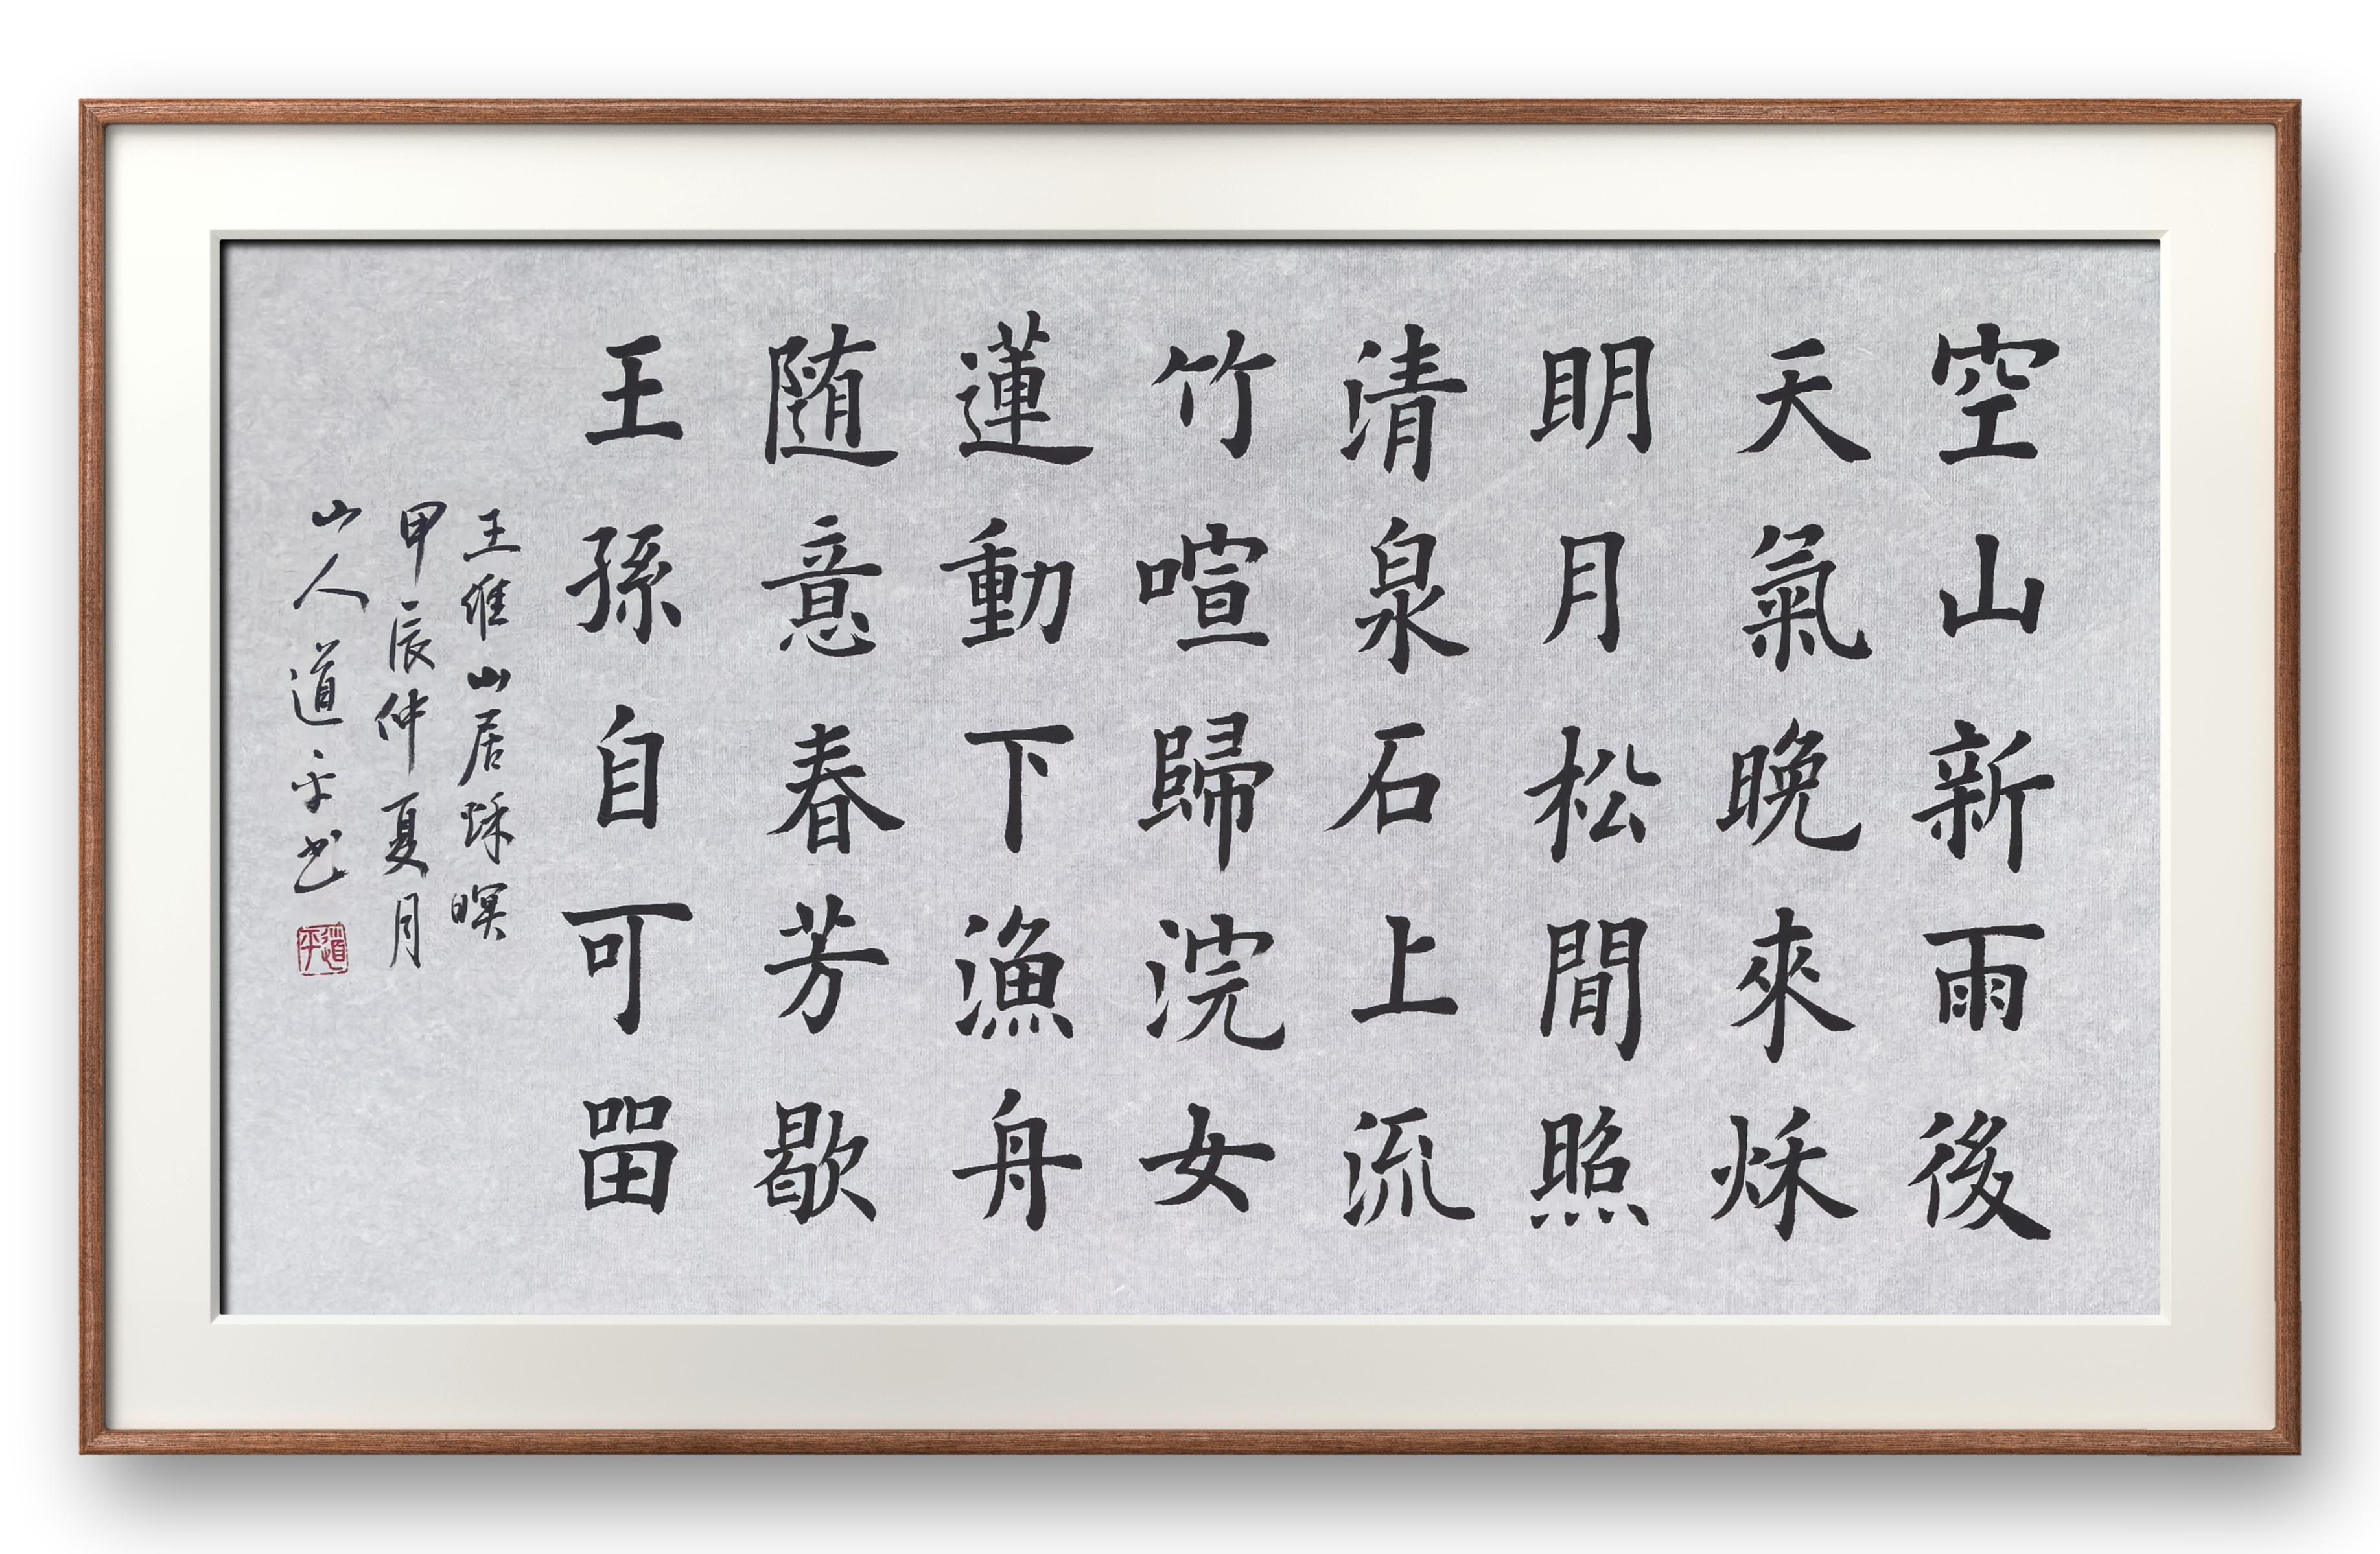 空山新雨後
天氣晚來秌
明月松間照
清泉石上流
竹喧歸浣女
蓮動下漁舟
随意春芳歇
王孫自可畱
王維山居秌暝
甲辰仲夏月
山人道平书
道平